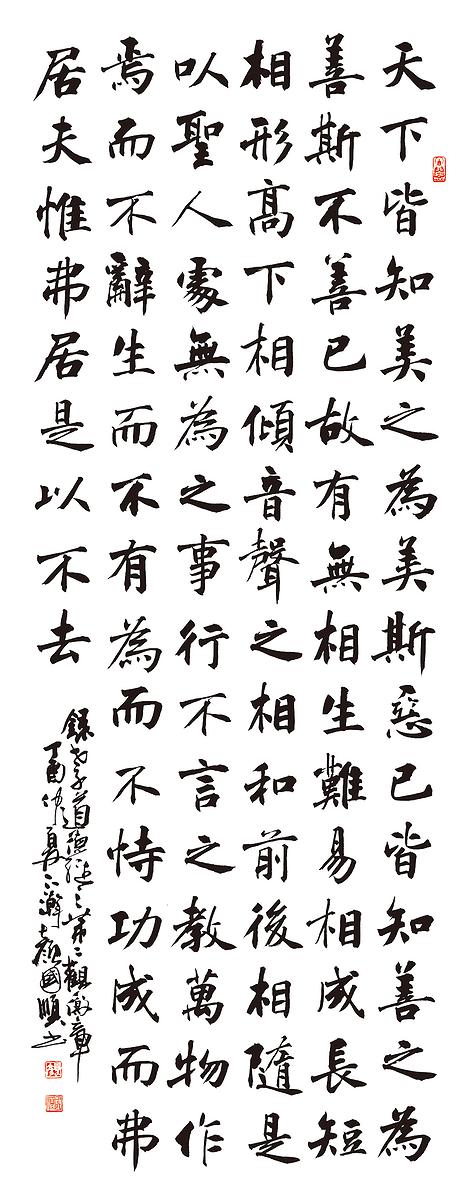 天下皆知美之為美斯惡已皆知善之為
善斯不善已故有無相生難易相成長短
相形髙下相傾音聲之相和前後相隨是
以聖人處無為之事行不言之教萬物作
焉而不辭生而不有為而不恃功成而弗
居夫惟弗居是以不去
錄老子道德經之第二觀徼章
丁酉仲夏顏國順書